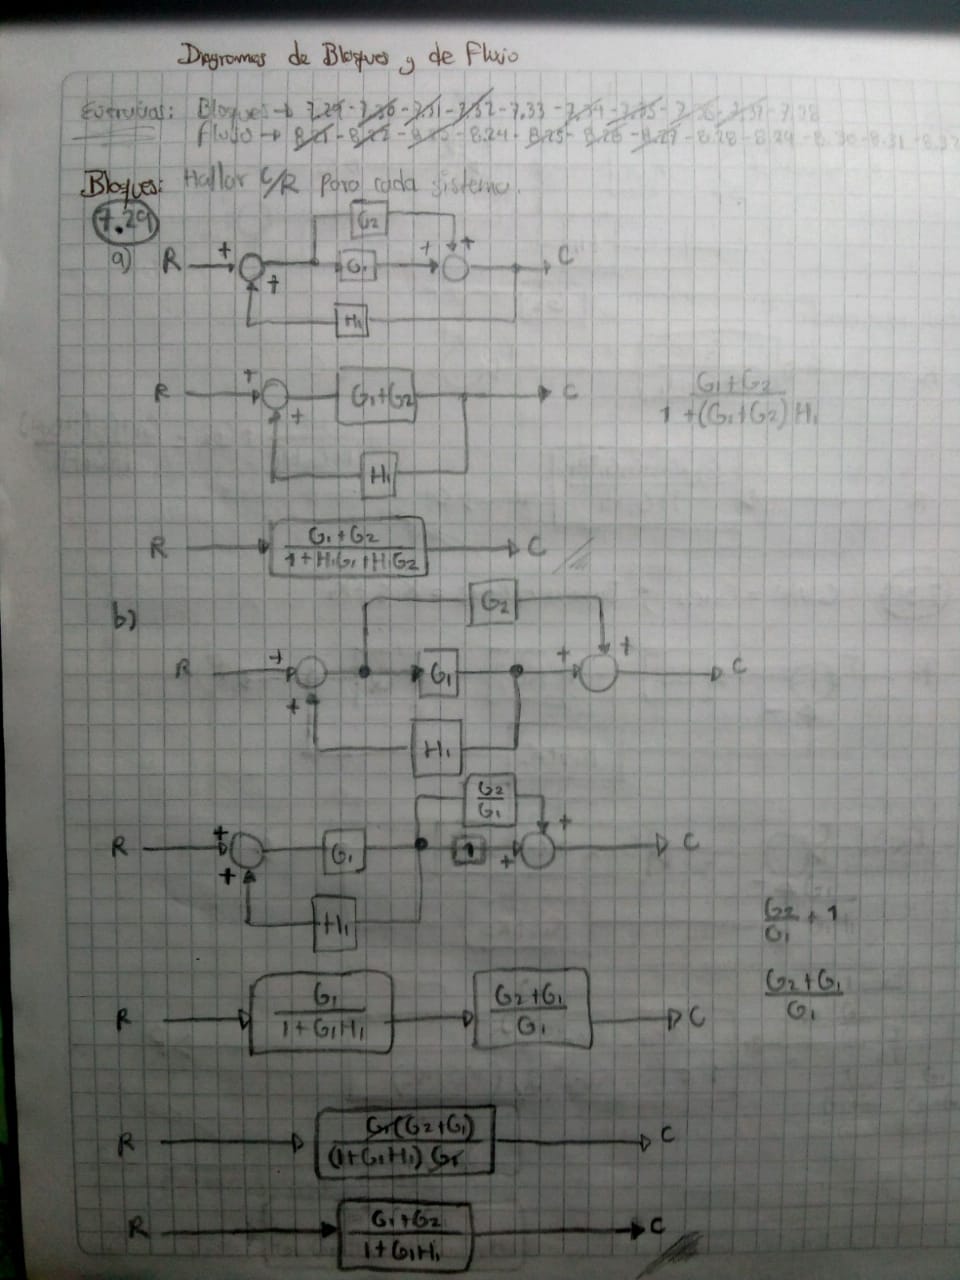 Diagramas de Bloques y de Flujo
Bloques → 7.29-7.30-7.31-7.32-7.33-7.34-7.35-7.36-7.37-7.38
Flujo → 8.21-8.22- -8.24-8.25-8.26-8.27-8.28-8.29-8.30-8.31-8.32
Bloques: Hallar C/R para cada sistema.
7.29
G2
a) R + + G1 + + C
H1
R + + G1+G2 C
G1+G2
1+(G1+G2)H1
H1
R G1+G2 C
1+H1G1+H1G2
b)
G2
R + + G1 + + C
H1
G2
G1
R + + G1 1 + + C
H1
G2/G1 + 1
R G1 G2+G1 C
1+G1H1 G1
G2+G1
G1
R G1(G2+G1) C
(1+G1H1)G1
R G1+G2 C
1+G1H1